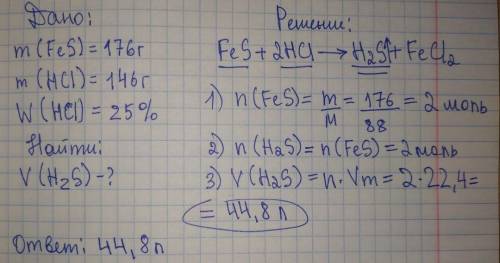 Дано:
m(FeS)=176г
m(HCl)=146г
W(HCl)=25%
Найти:
V(H₂S)-?
Решение:
FeS+2HCl→H₂S↑+FeCl₂
1) n(FeS)=m/M=176/88=2 моль
2) n(H₂S)=n(FeS)=2моль
3) V(H₂S)=n·Vm=2·22,4=
=44,8л
Ответ: 44,8л